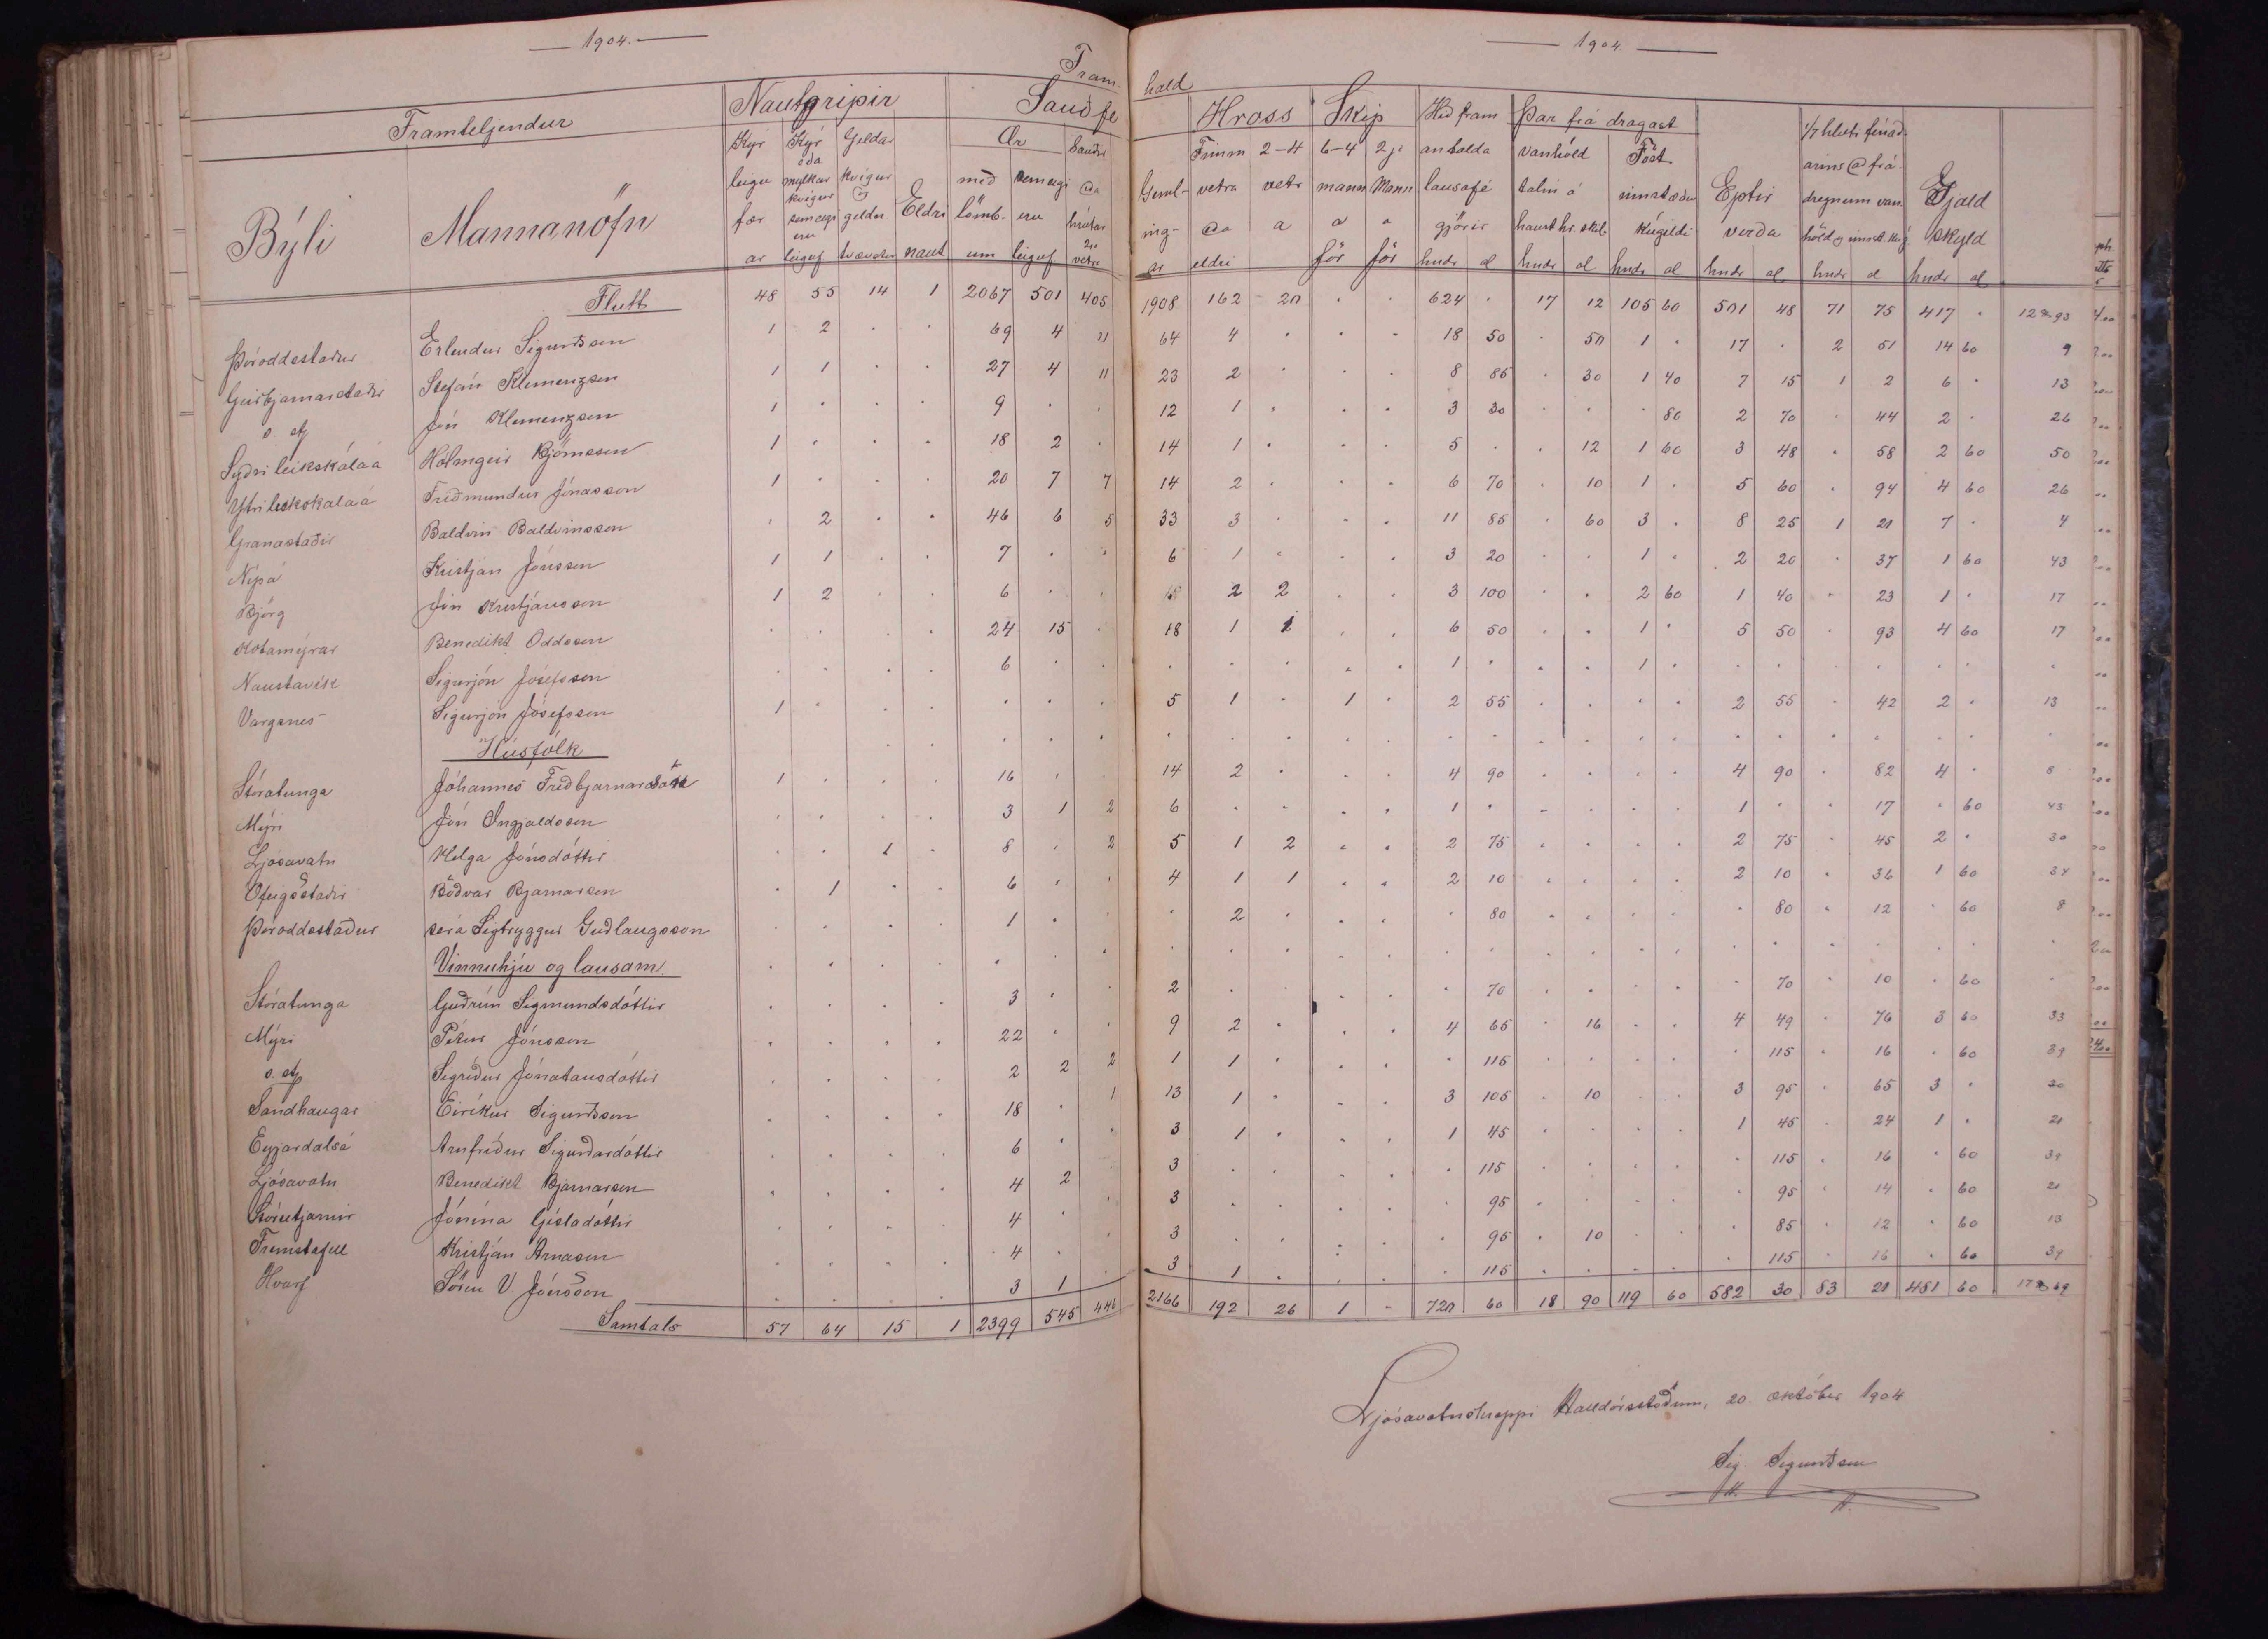 — 1904. —
— 1904 —
Fram-
hald
Framteljendur
Nautgripir
Sauðfé
Hross
Skip
Hið fram
antalda
lausafé
gjörir
hndr al
Þar frá dragast
vanhöld
talin á
haust hr. skil.
hndr al
Föst
innstæðu
kúgildi
hndr al
Eptir
verða
hndr al
1/7 hluti fénað-
arins @ frá-
dregnum van-
höld og innst. kúg
hndr al
Gjald
skyld
hndr al
Býli
Mannanöfn
Kýr
leigu
fær
ar
Kýr
eða
mylkar
kvígur
sem eigi
eru
leiguf
Geldar
kvígur
og
geldn.
tvævetur
Eldri
naut
Ær
með
lömb-
um
sem eigi
eru
leiguf
Sauðir
@a
hrútar
2.
vetra
Geml-
ing-
ar
Fimm
vetra
@a
eldri
2-4
vetr
a
6-4
mann
a
för
2ja
Mann
a
för
Flutt 48 55 14 1 2067 501 405 1908 162 20 . . 624 . 17 12 105 60 501 48 71 75 417 . 12 93
Þóroddsstaður Erlendur Sigurðsson 1 2 . . 69 4 11 64 4 . . . 18 50 . 50 1 . 17 . 2 51 14 60 9
Geirbjarnarstaðir Stefán Klemenzson 1 1 . . 27 4 11 23 2 . . . 8 85 . 30 1 40 7 15 1 2 6 . 13
s. st. Jón Klemenzson 1 . . . 9 . . 12 1 . . . 3 30 . . . 80 2 70 . 44 2 . 26
Syðri leikskálaá Hólmgeir Björnsson 1 . . . 18 2 . 14 1 . . . 5 . . 12 1 60 3 48 . 58 2 60 50
Ytri leikskálaá Friðmundur Jónasson 1 . . . 20 7 7 14 2 . . . 6 70 . 10 1 . 5 60 . 94 4 60 26
Granastaðir Baldvin Baldvinsson . 2 . . 46 6 5 33 3 . . . 11 85 . 60 3 . 8 25 1 21 7 . 4
Nípá Kristján Jónsson 1 1 . . 7 . . 6 1 . . . 3 20 . . 1 . 2 20 . 37 1 60 43
Björg Jón Kristjánsson 1 2 . . 6 . . 10 2 2 . . 3 100 . . 2 60 1 40 . 23 1 . 17
Kotamýrar Benedikt Oddsson . . . . 24 15 . 18 1 1 . . 6 50 . . 1 . 5 50 . 93 4 60 17
Naustavík Sigurjón Jósefsson . . . . 6 . . . . . . . 1 . . . 1 . . . . . . . .
Vargsnes Sigurjón Jósefsson 1 . . . . . . 5 1 . 1 . 2 55 . . . . 2 55 . 42 2 . 13
Húsfólk
Stóratunga Jóhannes Friðbjarnarson 1 . . . 16 . . 14 2 . . . 4 90 . . . . 4 90 . 82 4 . 8
Mýri Jón Ingjaldsson . . . . 3 1 2 6 . . . . 1 . . . . . 1 . . 17 . 60 43
Ljósavatn Helga Jónsdóttir . . 1 . 8 . 2 5 1 2 . . 2 75 . . . . 2 75 . 45 2 . 30
Ófeigsstaðir Böðvar Bjarnason . 1 . . 6 . . 4 1 1 . . 2 10 . . . . 2 10 . 36 1 60 34
Þóroddsstaður séra Sigtryggur Guðlaugsson . . . . 1 . . . 2 . . . . 80 . . . . . 80 . 12 . 60 8
Vinnuhjú og lausam.
Stóratunga Guðrún Sigmundsdóttir . . . . 3 . . 2 . . . . . 70 . . . . . 70 . 10 . 60 .
Mýri Pétur Jónsson . . . . 22 . . 9 2 . . . 4 65 . 16 . . 4 49 . 76 3 60 33
s. st. Sigríður Jónatansdóttir . . . . 2 2 2 1 1 . . . . 115 . . . . . 115 . 16 . 60 39
Sandhaugar Eiríkur Sigurðsson . . . . 18 . 1 13 1 . . . 3 105 . 10 . . 3 95 . 65 3 . 20
Eyjardalsá Arnfríður Sigurðardóttir . . . . 6 . . 3 1 . . . 1 45 . . . . 1 45 . 24 1 . 21
Ljósavatn Benedikt Bjarnason . . . . 4 2 . 3 . . . . . 115 . . . . . 115 . 16 . 60 39
Stórutjarnir Jónína Gísladóttir . . . . 4 . . 3 . . . . . 95 . . . . . 95 . 14 . 60 21
Fremstafell Kristján Árnason . . . . 4 . . 3 . . . . . 95 . 10 . . . 85 . 12 . 60 13
Hvarf Sören V. Jónsson . . . . 3 1 . 3 1 . . . . 115 . . . . . 115 . 16 . 60 39
Samtals 57 64 15 1 2399 545 446 2166 192 26 1 - 720 60 18 90 119 60 582 30 83 21 481 60 17 69
Ljósavatnshreppi Halldórsstöðum, 20. október 1904
Sig. Sigurðsson